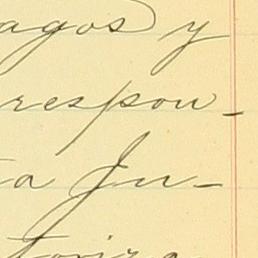 agos y
respon-
a Ju-
toriza